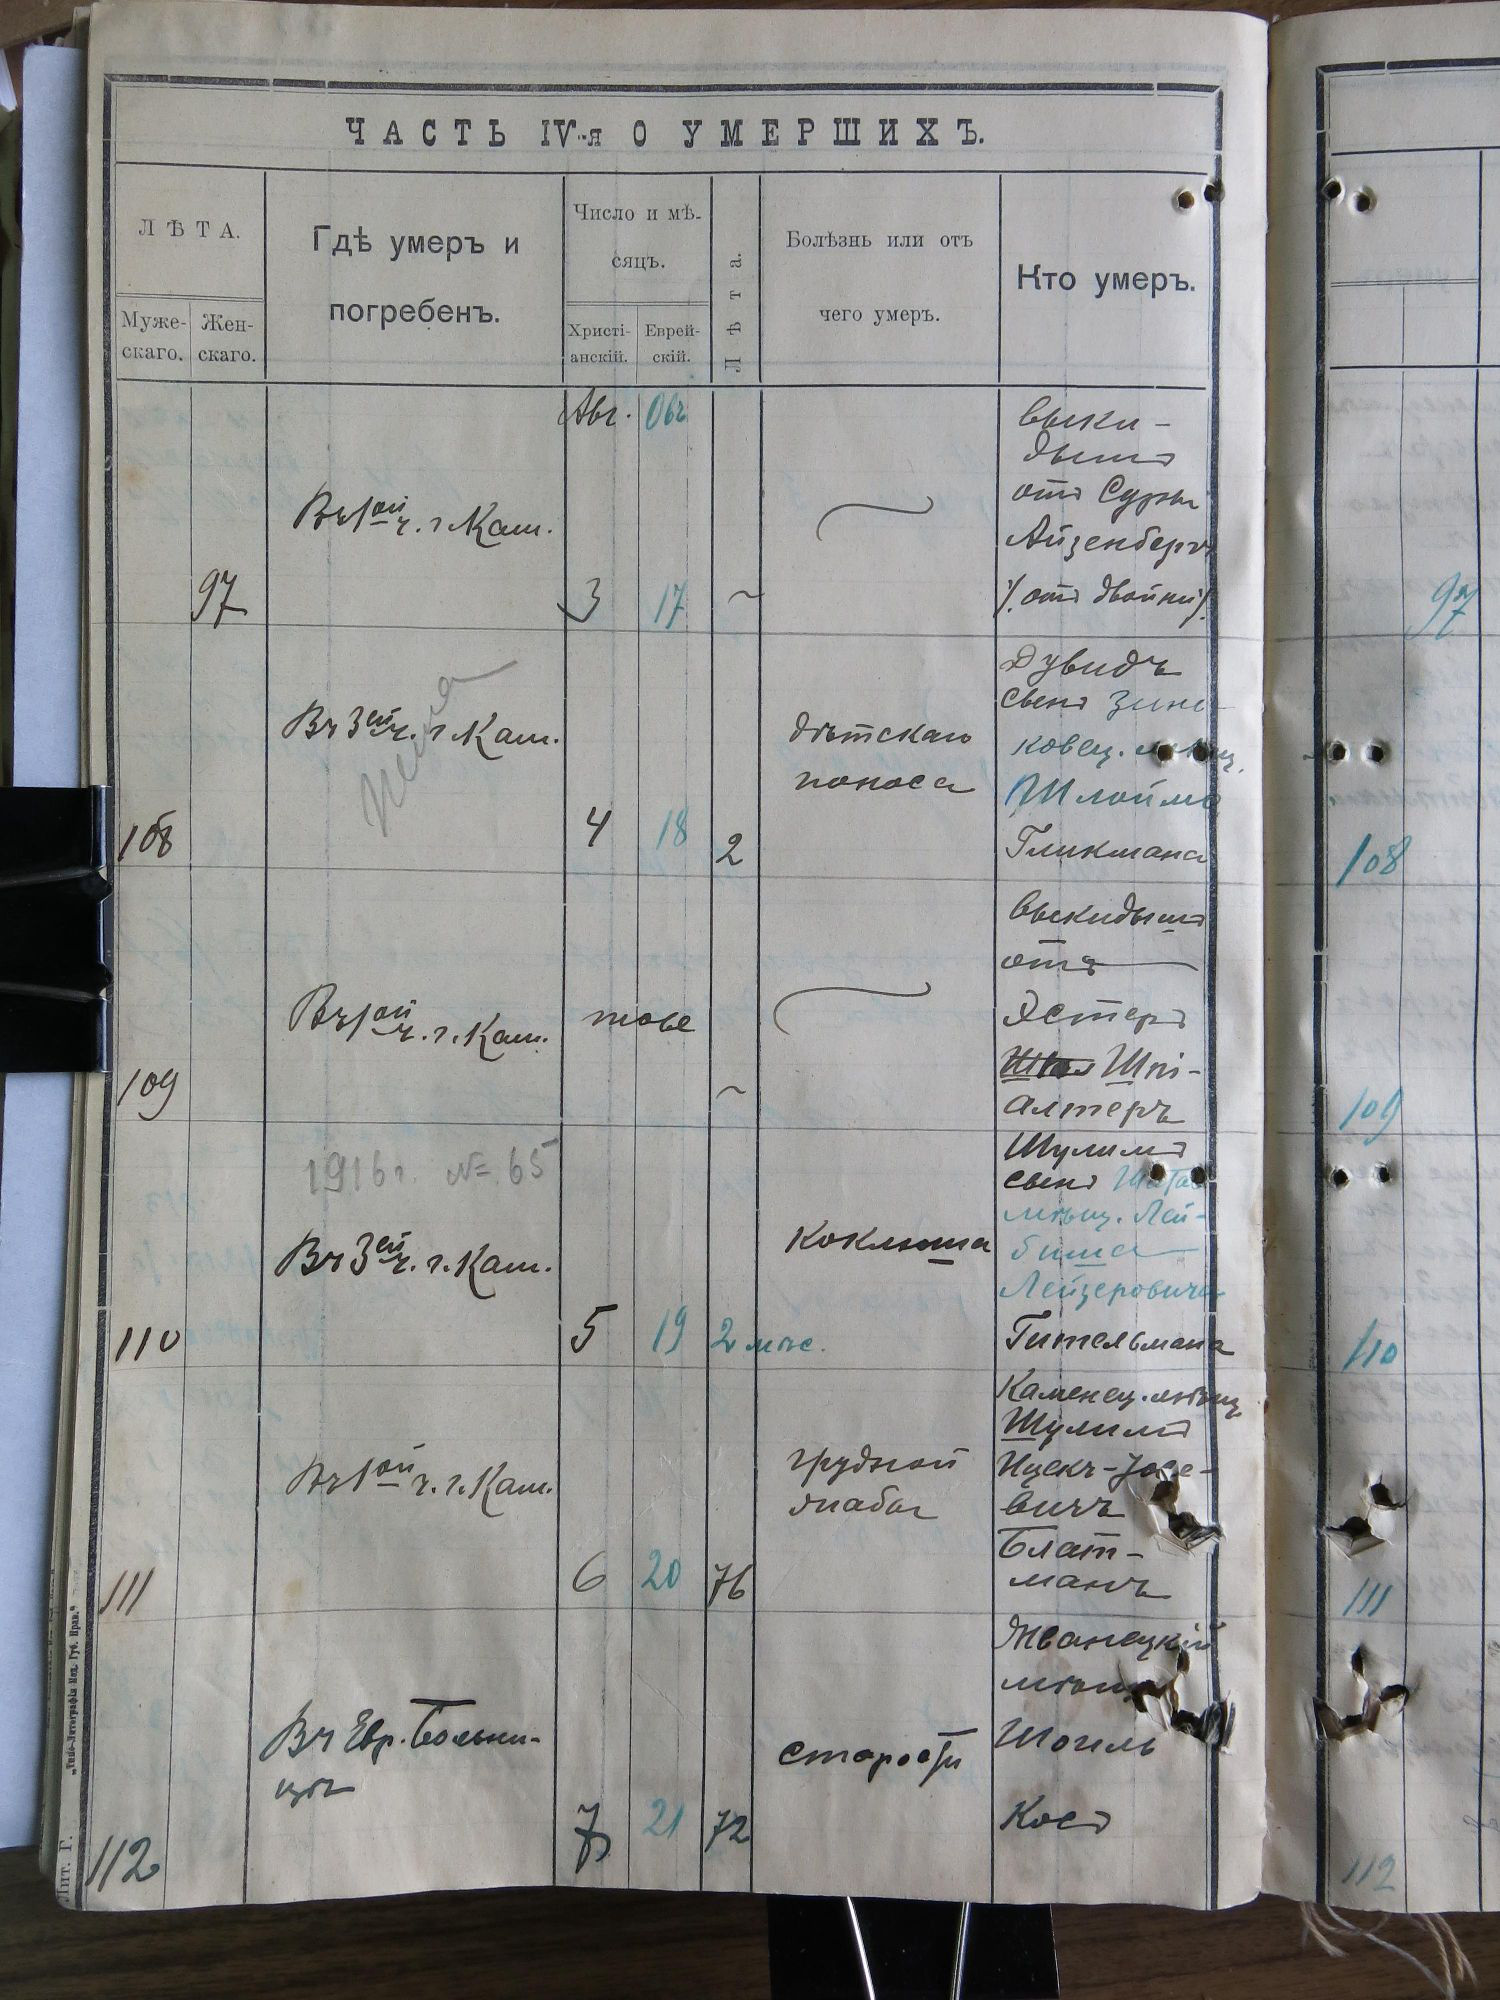 ЧАСТЬ IV-я О УМЕРШИХЪ.
ЛѢТА.
Муже-
скаго.
Жен-
скаго.
Гдѣ умеръ и
погребенъ.
Число и мѣ-
сяцъ.
Христі-
анскій.
Еврей-
скій.
Лѣта.
Болѣзнь или отъ
чего умеръ.
Кто умеръ.
Авг. Овъ
97
Въ 1ой ч. г. Кам.
3 17
выки-
дышъ
отъ Суры
Айзенбергъ
/. отъ двойни /.
97
108
Въ 3ей ч. г. Кам.
4 18
2
дѣтскаго
поноса
Дувидъ
сынъ Зинь
ковец.
Шлоймы
Гликмана
108
109
Въ 1ой ч. г. Кам.
тоже
выкидышъ
отъ
Эстеръ
Шпі-
алтеръ
109
1916 г. № 65
110
Въ 3ей ч. г. Кам.
5 19
2 мѣс.
Коклюша
Шулимъ
сынъ
мѣщ. Лей-
биша
Лейзеровича
Гительмана
110
111
Въ 1ой ч. г. Кам.
6 20
76
грудной
жабы
Каменец. мѣщ.
Шулимъ
Ицекъ-Іосе-
вичъ
Блат-
манъ
111
112
Въ Евр. Больни-
цѣ
7 21
72
старости
Жванецкій
мѣщ.
Шоиль
Косъ
112
Лит. Г.
„Типо-Литографія Под. Губ. Прав.“